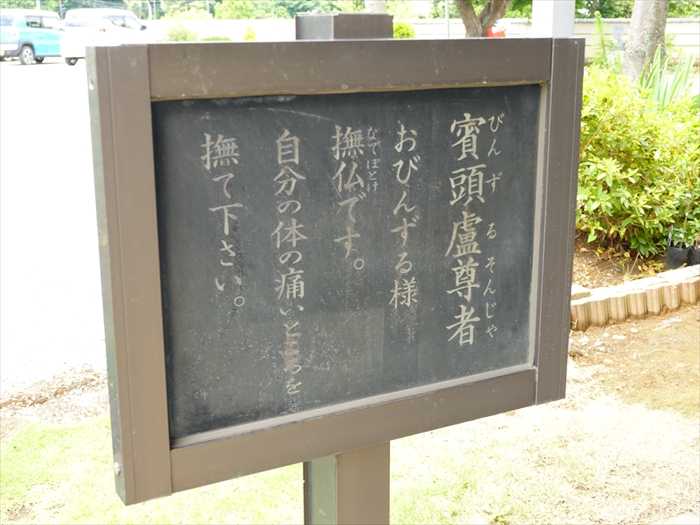 賓頭盧尊者
びんずるそんじゃ
おびんずる様
撫仏です。
なでぼとけ
自分の体の痛いところを
撫て下さい。